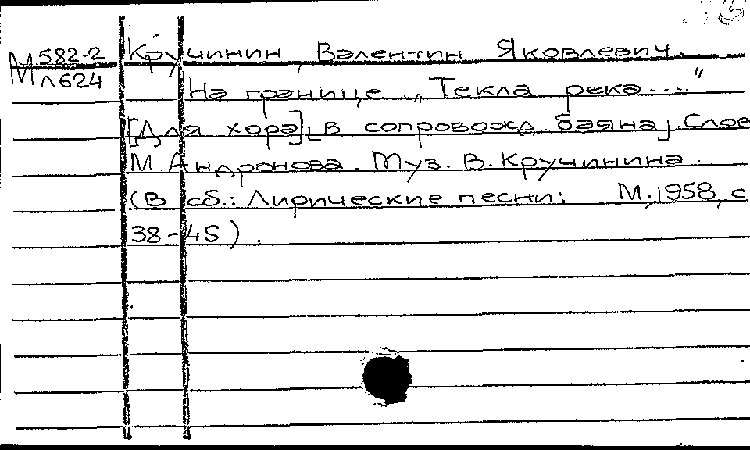 М 582-2
Л624
Кручинин, Валентин Яковлевич.
На границе „Текла река...."
[Для хора] [в сопровожд. баяна]. Слов
М. Андронова. Муз. В. Кручинина.
(В сб.: Лирические песни: М., 1958, с
38-45).